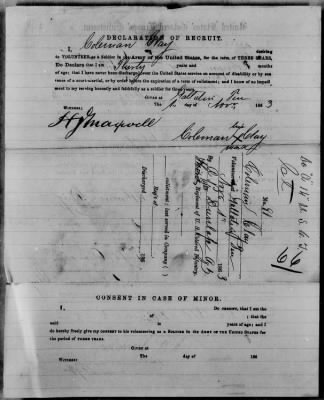 DECLARATION OF RECRUIT.
I, Coleman Clay desiring
to VOLUNTEER as a Soldier in the Army of the United States, for the term of THREE YEARS,
Do Declare That I am Thirty years and months
of age; that I have never been discharged from the United States service on account of disability or by sen-
tence of a court-martial, or by order before the expiration of a term of enlistment; and I know of no impedi-
ment to my serving honestly and faithfully as a soldier for three years.
GIVEN at Gallatin Ten
The day of Nov 1863
WITNESS:
H J Maxwell
Coleman Clay
his
mark
No. 91
Coleman Clay
Volunteered at Gallatin Ten
1863
By
Regiment of U. S. Volunteers
enlistment; last served in Company ( )
Reg't of
Discharged 186
66
CONSENT IN CASE OF MINOR.
I, DO CERTIFY, That I am the
of ; that the
said is years of age; and I
do hereby freely give my CONSENT to his volunteering as a SOLDIER in the ARMY OF THE UNITED STATES for
the period of THREE YEARS.
GIVEN at
The day of 186
WITNESS: